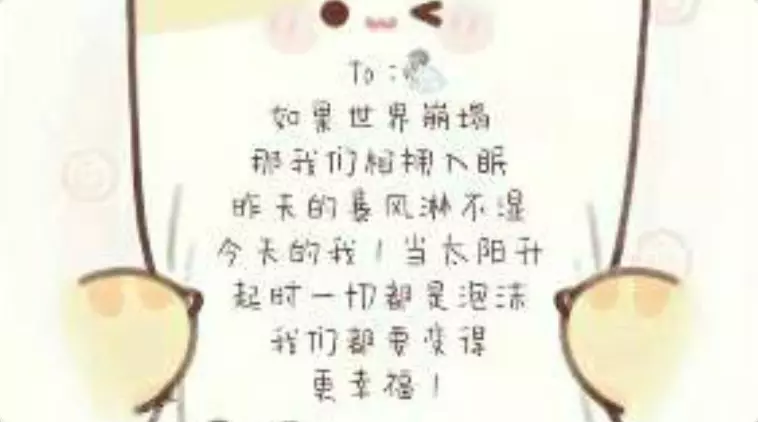 To:
如果世界崩塌
那我们相拥入眠
昨天的暴风淋不湿
今天的我！当太阳升
起时一切都是泡沫
我们都要变得
更幸福！